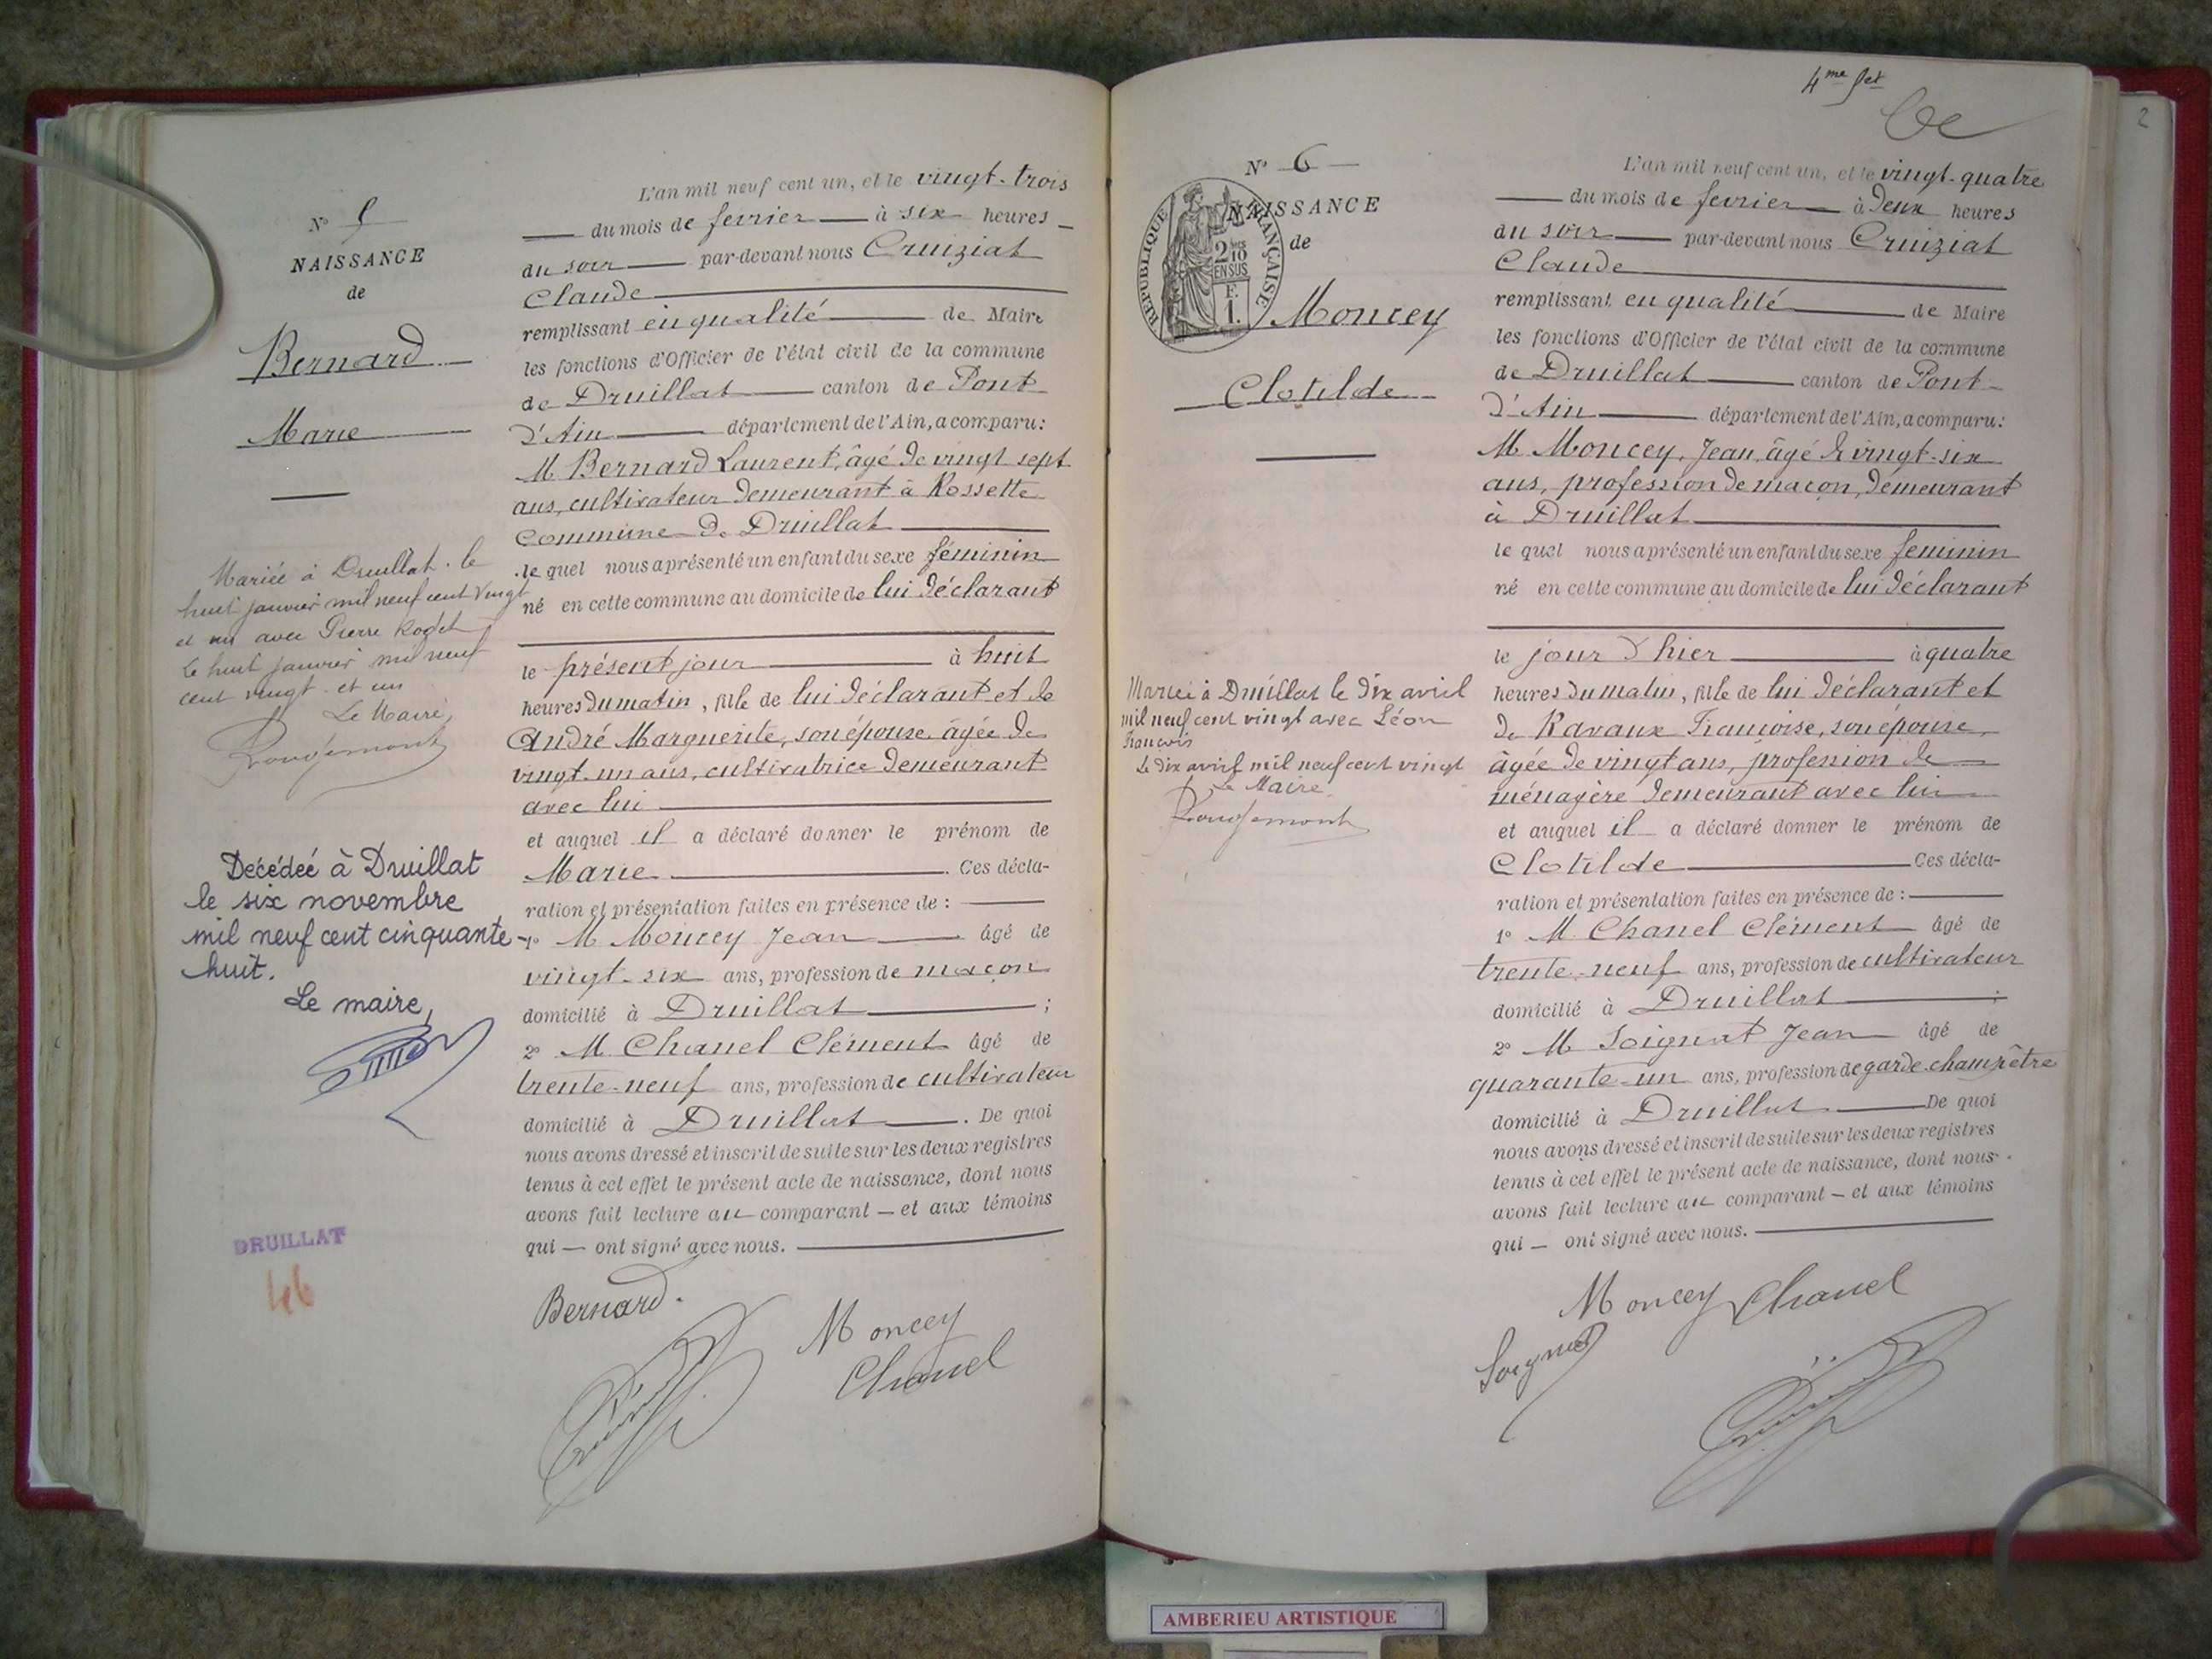 N° 5
NAISSANCE
de
Bernard
Marie
Mariée à Druillat le
huit janvier mil neuf cent vingt
et un avec Pierre Rodet
le huit janvier mil neuf
cent vingt et un
Le Maire,
Rougemont
Décédée à Druillat
le six novembre
mil neuf cent cinquante-
huit.
Le maire,
DRUILLAT
46
L'an mil neuf cent un, et le vingt-trois
du mois de fevrier à six heures
du soir par-devant nous Cruiziat
Claude
remplissant en qualité de Maire
les fonctions d'Officier de l'état civil de la commune
de Druillat canton de Pont
d'Ain département de l'Ain, a comparu:
M Bernard Laurent, âgé de vingt sept
ans, cultivateur demeurant à Rossette
commune de Druillat
le quel nous a présenté un enfant du sexe féminin
né en cette commune au domicile de lui déclarant
le présent jour à huit
heures du matin, fille de lui déclarant et de
André Marguerite, son épouse âgée de
vingt-un ans, cultivatrice demeurant
avec lui
et auquel il a déclaré donner le prénom de
Marie. Ces décla-
ration et présentation faites en présence de :
1° M Moncey Jean âgé de
vingt-six ans, profession de maçon
domicilié à Druillat ;
2° M Chanel Clément âgé de
trente-neuf ans, profession de cultivateur
domicilié à Druillat. De quoi
nous avons dressé et inscrit de suite sur les deux registres
tenus à cet effet le présent acte de naissance, dont nous
avons fait lecture au comparant — et aux témoins
qui — ont signé avec nous.
Bernard.
Moncey
Chanel
4me fet
2
N° 6
NAISSANCE
de
RÉPUBLIQUE FRANÇAISE
2/10
EN SUS
F.
1.
Moncey
Clotilde
Mariée à Druillat le dix avril
mil neuf cent vingt avec Léon
François
Le dix avril mil neuf cent vingt
Le Maire.
Rougemont
L'an mil neuf cent un, et le vingt-quatre
du mois de fevrier à deux heures
du soir par-devant nous Cruiziat
Claude
remplissant en qualité de Maire
les fonctions d'Officier de l'état civil de la commune
de Druillat canton de Pont-
d'Ain département de l'Ain, a comparu:
M Moncey, Jean, âgé de vingt-six
ans, profession de maçon, demeurant
à Druillat
le quel nous a présenté un enfant du sexe feminin
né en cette commune au domicile de lui déclarant
le jour d'hier à quatre
heures du matin, fille de lui déclarant et
de Ravaux Françoise, son épouse,
âgée de vingt ans, profession de
ménagère demeurant avec lui
et auquel il a déclaré donner le prénom de
Clotilde Ces décla-
ration et présentation faites en présence de :
1° M Chanel Clément âgé de
trente-neuf ans, profession de cultivateur
domicilié à Druillat ;
2° M Soignat Jean âgé de
quarante-un ans, profession de garde-champêtre
domicilié à Druillat De quoi
nous avons dressé et inscrit de suite sur les deux registres
tenus à cet effet le présent acte de naissance, dont nous
avons fait lecture au comparant — et aux témoins
qui — ont signé avec nous.
Moncey Chanel
Soignat
AMBERIEU ARTISTIQUE